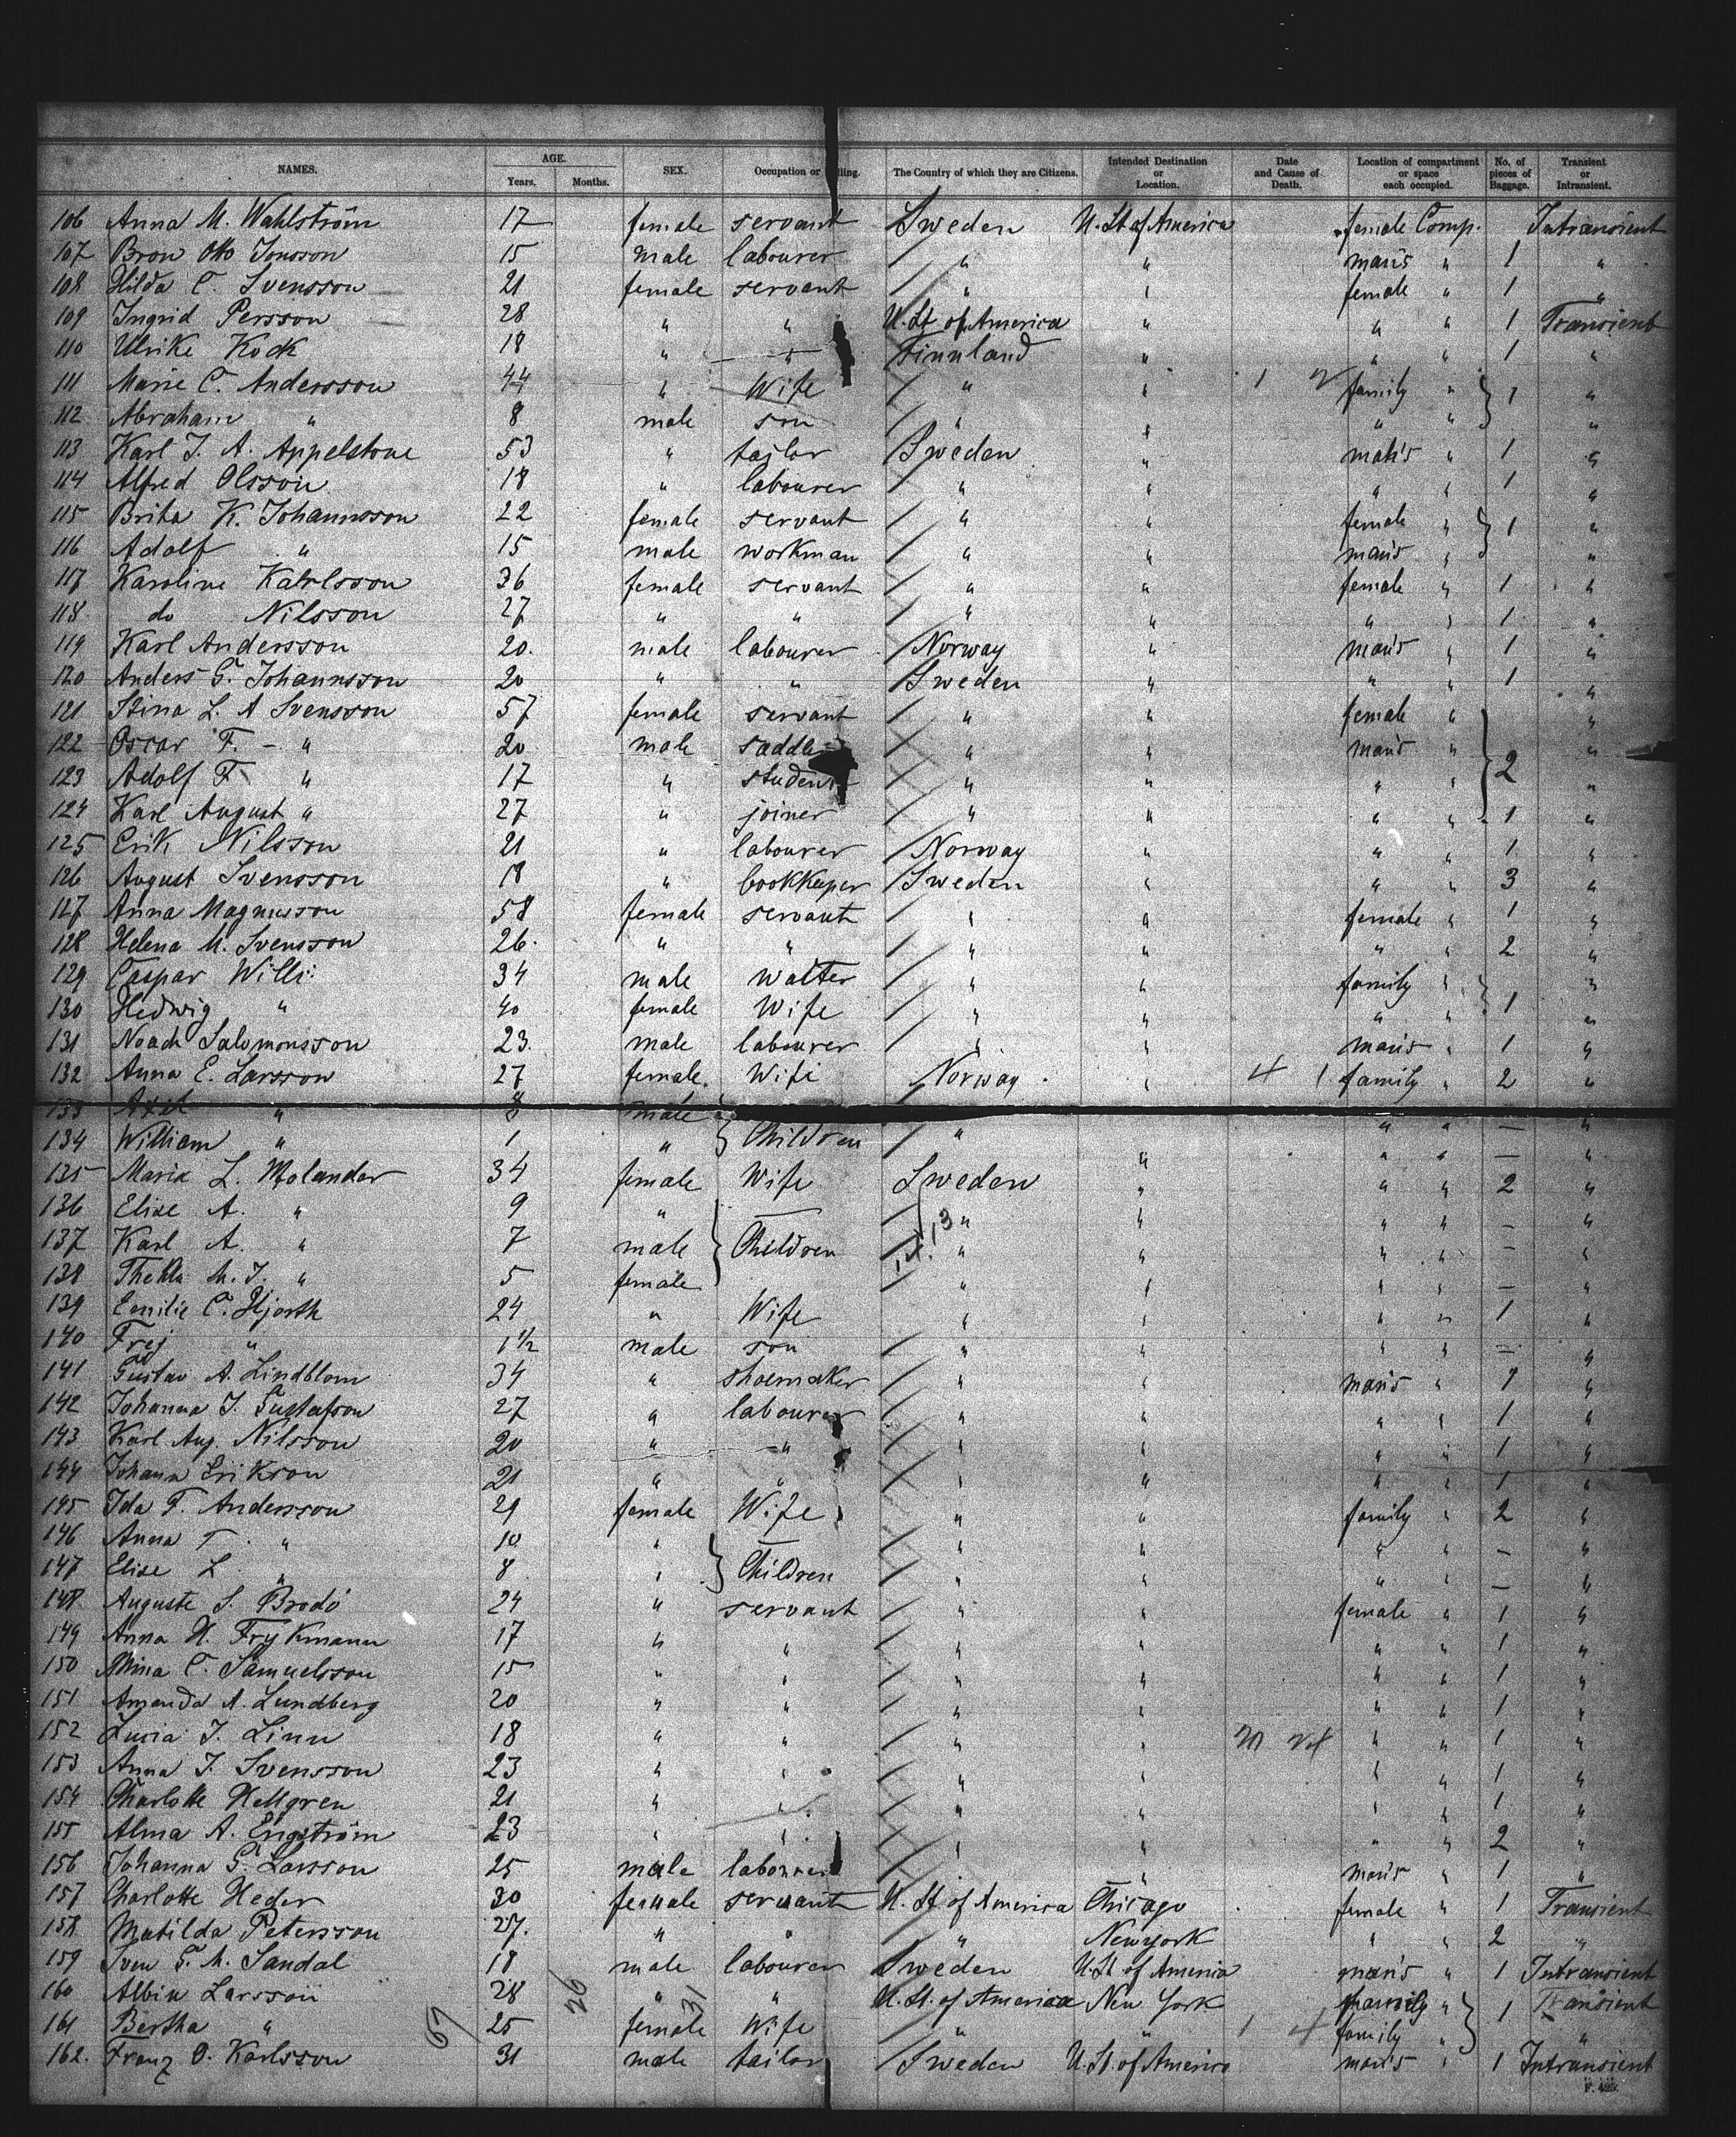 NAMES. AGE. Years. Months. SEX. Occupation or lling. The Country of which they are Citizens. Intended Destination or Location. Date and Cause of Death. Location of compartment or space each occupied. No. of pieces of Baggage. Transient or Intransient.
106 Anna M. Wahlström 17 female servant Sweden U. St. of America female Comp. Intransient
107 Bron Otto Jonsson 15 male labourer " " man's " 1 "
108 Hilda C. Svensson 21 female servant " " female " 1 "
109 Ingrid Persson 28 " " U. St. of America " " " 1 Transient
110 Ulrike Kock 18 " " Finnland " " " 1 "
111 Marie C. Andersson 44 " Wife " " 1 2 family " 1 "
112 Abraham " 8 male son " " " " "
113 Karl J. A. Appelstone 53 " tailor Sweden " man's " 1 "
114 Alfred Olsson 18 " labourer " " " " 1 "
115 Brita K. Johannsson 22 female servant " " female " 1 "
116 Adolf " 15 male workman " " man's " "
117 Karoline Kahlsson 36 female servant " " female " 1 "
118 do Nilsson 27 " " " " " " 1 "
119 Karl Andersson 20. male labourer Norway " man's " 1 "
120 Anders G. Johannsson 20 " " Sweden " " " 1 "
121 Stina L. A Svensson 57 female servant " " female " "
122 Oscar F. - " 20 male saddle " " man's " "
123 Adolf F. " 17 " student " " " " 2 "
124 Karl August " 27 " joiner " " " " 1 "
125 Erik Nilsson 21 " labourer Norway " " " 1 "
126 August Svensson 18 " bookkeeper Sweden " " " 3 "
127 Anna Magnusson 58 female servant " " female " 1 "
128 Helena M. Svensson 26. " " " " " " 2 "
129 Caspar Willi 34 male walter " " family " "
130 Hedwig " 40 female Wife " " " " 1 "
131 Noach Salomonsson 23. male labourer " " man's " 1 "
132 Anna E. Larsson 27 female. Wife Norway " 4 1 family " 2 "
133 Axel " 8 male
134 William " 1 " Children " " " " — "
135 Maria L. Molander 34 female Wife Sweden " " " 2 "
136 Elise A. " 9 " " " " " — "
137 Karl A. " 7 male Children " " " " — "
138 Thekla M. J. " 5 female " " " " — "
139 Emilie C. Hjorth 24 " Wife " " " " 1 "
140 Frej " 1 1/2 male son " " " " — "
141 Gustav A. Lindblom 34 " shoemaker " " man's " 1 "
142 Johanna J. Gustafson 27 " labourer " " " " 1 "
143 Karl Aug. Nilsson 20 " " " " " " 1 "
144 Johann Erikson 21 " " " " " " 1 "
145 Ida F. Andersson 29 female Wife " " family " 2 "
146 Anna T. " 10 " " " " " — "
147 Elise L. " 8 " Children " " " " — "
148 Auguste S. Brodö 24 " servant " " female " 1 "
149 Anna H. Frykmann 17 " " " " " " 1 "
150 Mina C. Samuelsson 15 " " " " " " 1 "
151 Amanda A. Lundberg 20 " " " " " " 1 "
152 Lucia J. Linn 18 " " " " " " 1 "
153 Anna J. Svensson 23 " " " " " " 1 "
154 Charlotte Hellgren 21 " " " " " " 1 "
155 Alma A. Engström 23 " " " " " " 2 "
156 Johanna G. Larsson 25 male labourer " " man's " 1 "
157 Charlotte Heder 30 female servant U. St. of America Chicago female " 1 Transient
158 Matilda Petersson 27. " " " Newyork " " 2 "
159 Sven G. M. Sandal 18 male labourer Sweden U. St of America man's " 1 Intransient
160 Albin Larsson 28 " " U. St. of America New York family " 1 Transient
161 Bertha " 25 female Wife " " 1 4 family " "
162. Franz O. Karlsson 31 male tailor Sweden U. St. of America man's " 1 Intransient
67 26 31